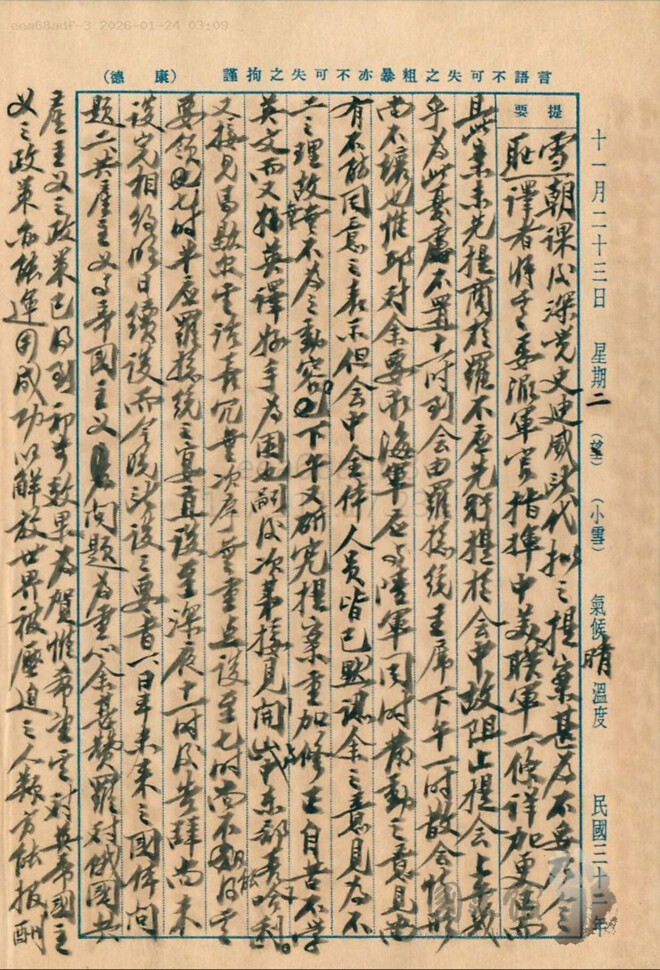 eea68adf-3 2026-01-24 03:09
言語不可失之粗暴亦不可失之拘謹（康德）
提要
十一月二十三日 星期二（望）（小雪）氣候晴溫度 民國三十二年
雪恥 朝課後深覺史迪威所代擬之提案甚為不妥今
譯者將其委派軍官指揮中美聯軍一條詳加更正而
且此案未先提商於羅不應先提於會中故阻止提會上午幾
乎為此憂慮不置十一時到會由羅總統主席下午一時散會情形
尚不壞也惟邱對余要求海軍應與陸軍同時發動之意見
有不能同意之表示但會中全體人員皆已默認余之意見為不
二之理故不為之動容 下午又研究提案重加修正自苦不學
英文而又無英譯好手為困也嗣後次第接見開
又接見馬歇爾其談話冗無次序無重點談至七時尚不得其
要領 七時半應羅總統之宴直談至深夜十一時後告辭尚未
談完相約明日續談而今晚所談之要者一日本未來之國體問
題二共產主義與帝國主義問題為重心余甚贊羅對俄國共
產主義之政策已得到初步效果為賀惟希望其對英帝國主
義之政策亦能運用成功以解放世界被壓迫之人類方能報酬